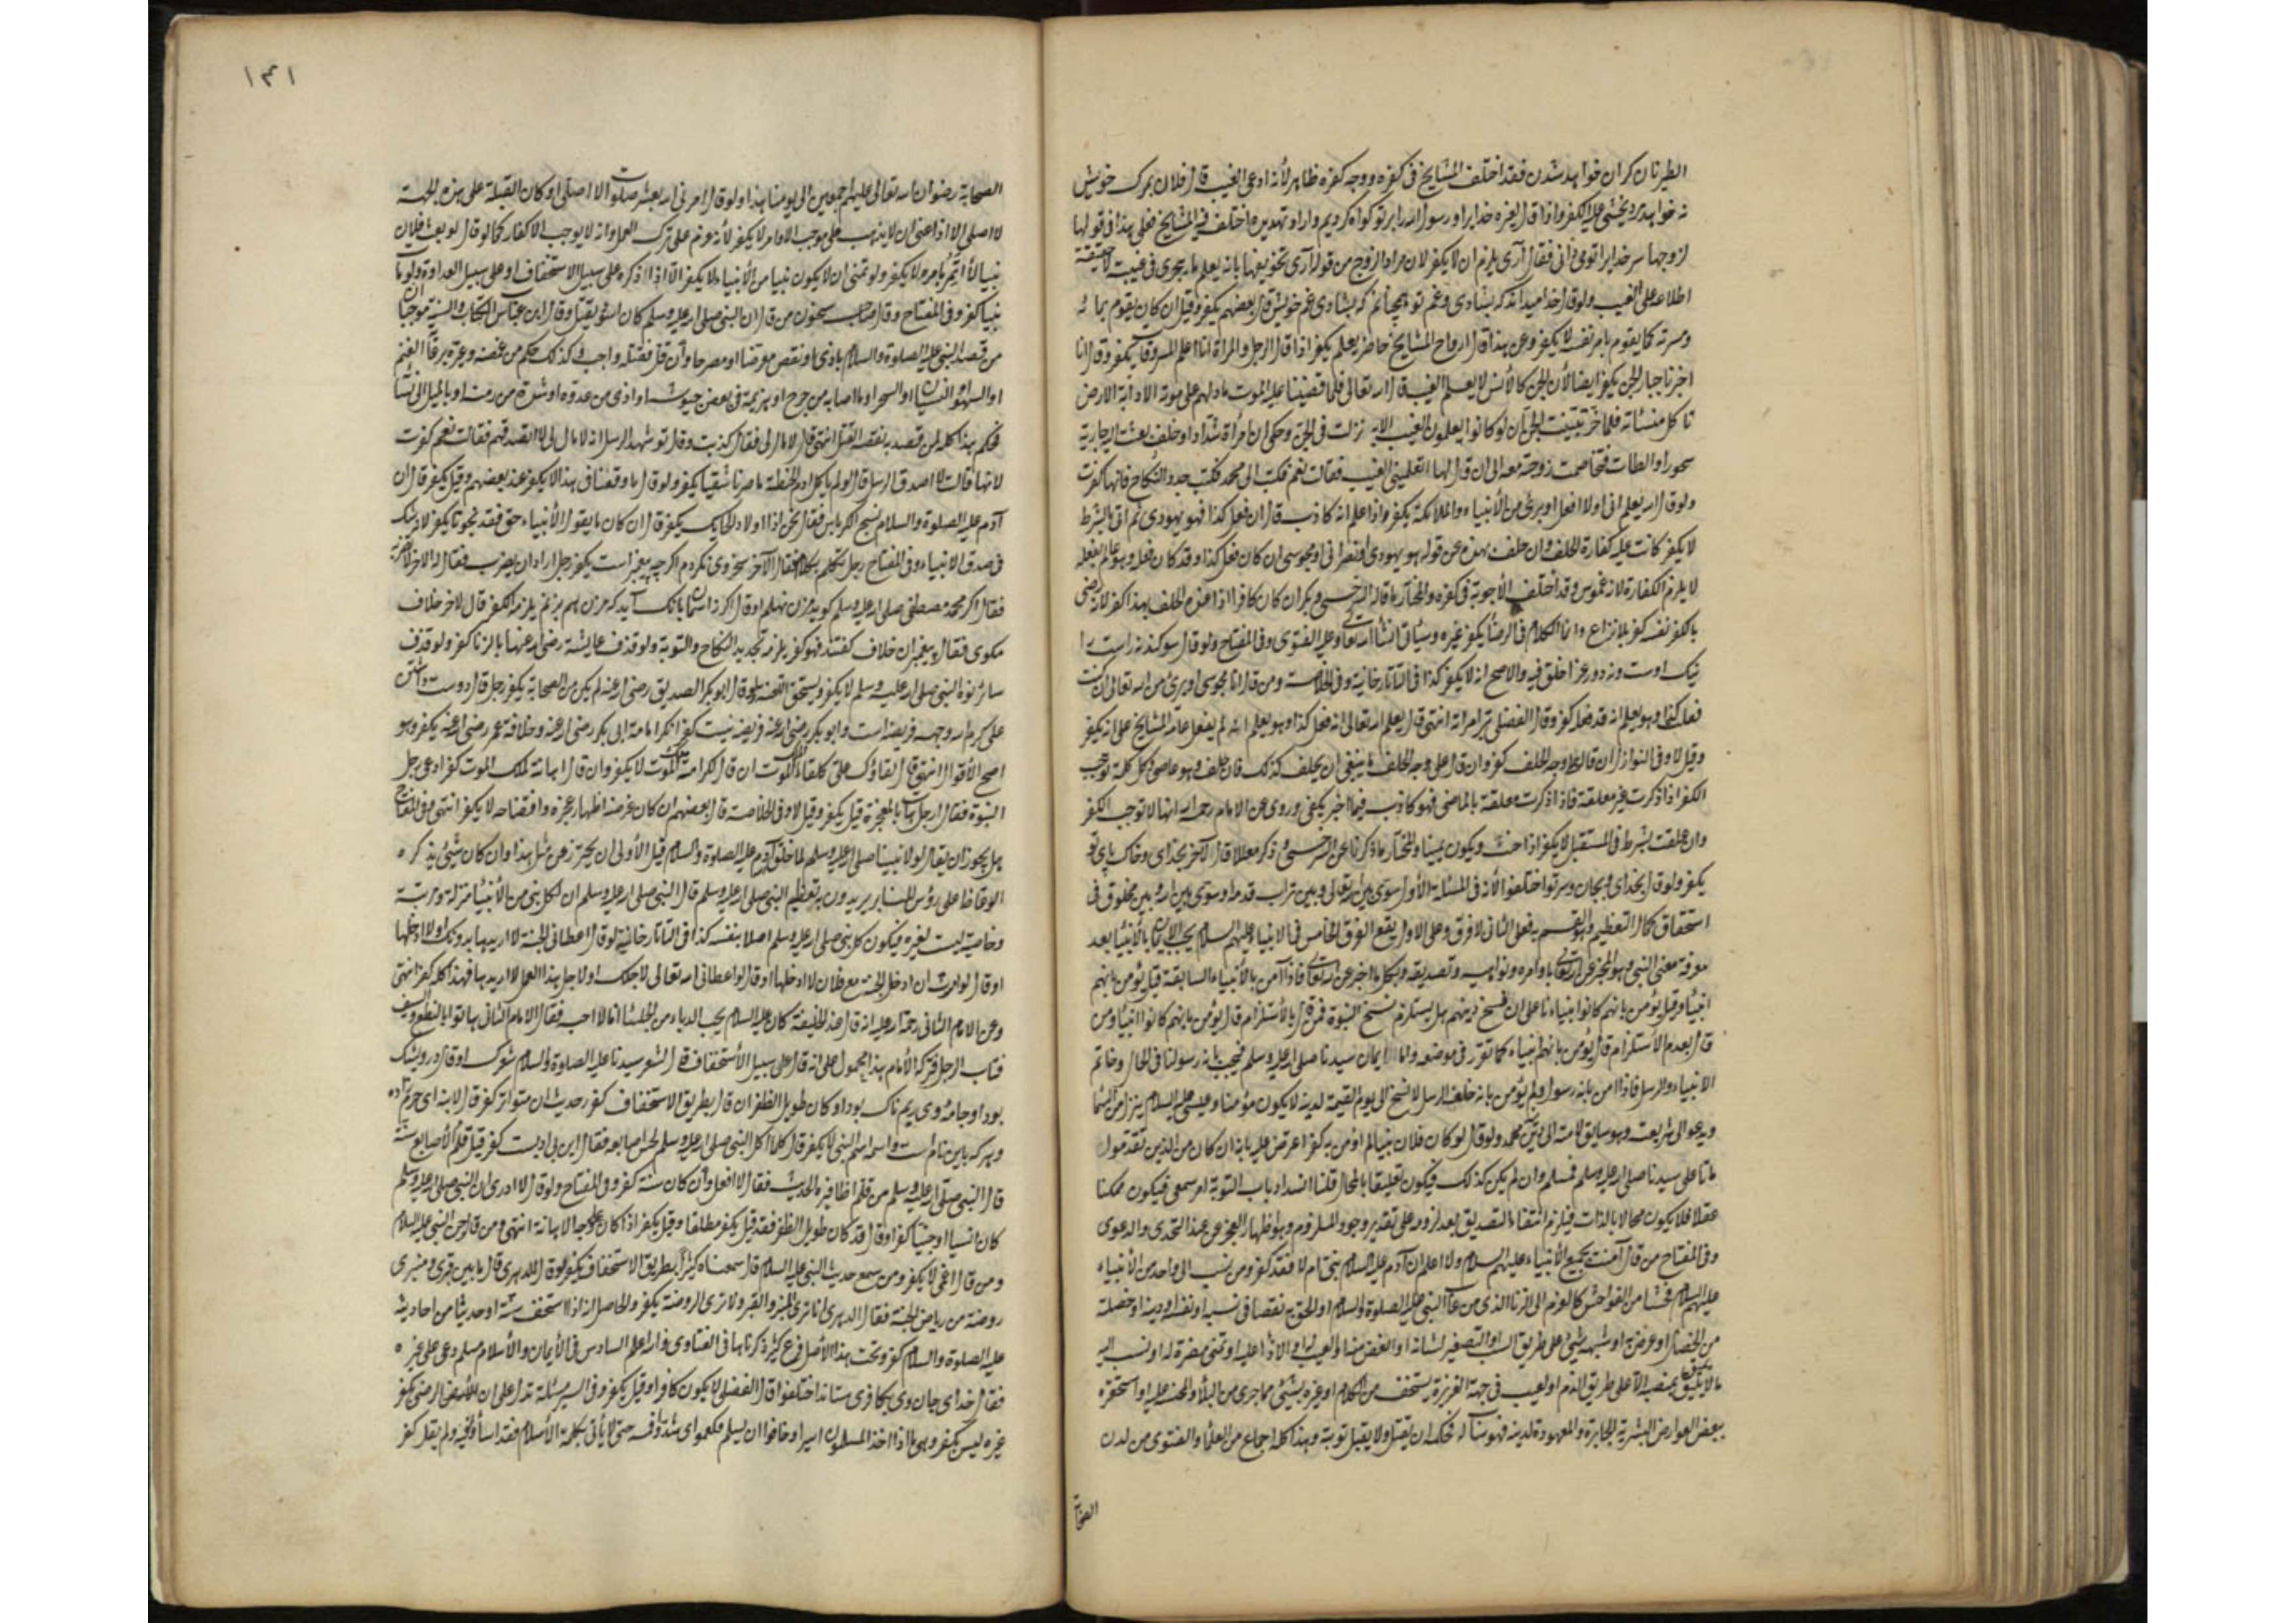 الطير نان كران خواهد شدن فقد اختلف المشايخ في كفره ووجه كفره ظاهر لأنه ادعى الغيب قال فلان بمرك خويش
نه خواهد مرد يخشى عليه الكفر واذا قال لغيره خدايرا ورسول الله را بر تو كواه كرديم واراد تهديده اختلف فيه المشايخ فعلى هذا في قولها
لزوجها سر خدايرا تو مي داني فقال آرى يلزم ان لا يكفر لان مراد الزوج من قوله آرى تخويفها بانه يعلم ما يجرى في غيبته لا حقيقة
اطلاعه على الغيب ولو قال خدا ميداند كه بشادى وغم تو همچنانم كه بشادى غم خويش قال بعضهم يكفر وقيل ان كان يقوم بما له
ومسرته كما يقوم بامر نفسه لا يكفر وعن هذا قال ارواح المشايخ حاضرة يعلم يكفر اذا قال الرجل والمرأة انا اعلم المسروقات يكفر وقال انا
اخبر باخبار الجن يكفر ايضا لأن الجن كالأنس لا يعلم الغيب قال الله تعالى فلما قضينا عليه الموت ما دلهم على موته الا دابة الارض
تاكل منسأته فلما خر تبينت الجن أن لو كانوا يعلمون الغيب الآية نزلت في الجن وحكى ان امرأة شداد او خلف بعثت الى جارية
سحورا والطات فتخاصمت زوجته معه الى ان قال لها اتعلمين الغيب فقالت نعم فكتب الى محمد فكتب جدد النكاح فانها كفرت
ولو قال الله يعلم انى اولا افعل او برئ من الأنبياء والملائكة يكفر واذا علم انه كاذب قال ان فعل كذا فهو يهودى ثم اتى بالشرط
لا يكفر كانت عليه كفارة الحلف وان حلف بهذه عن قوله هو يهودى او نصرانى او مجوسى ان كان فعل كذا وقد كان فعل وهو عالم بفعله
لا يلزم الكفارة لانه غموس وقد اختلف الأجوبة في كفره والمختار ما قاله السرخسى وبكر ان كان كافرا اذا عنده الحلف بهذا كفر لانه رضى
بالكفر نفسه كفر بلا نزاع وانما الكلام في الرضا بكفر غيره وسيأتى انشاء الله تعالى وعليه الفتوى وفى المفتاح ولو قال سوكند نه راست را
نيك است ونه دورغ را اختلف فيه والاصح انه لا يكفر كذا في التاتارخانية وفى الخلاصة ومن قال انا مجوسى او برئ من الله تعالى ان كنت
فعلت كذا وهو يعلم انه قد فعله كفر وقال الفضلى تبر امراته انتهى قال يعلم الله تعالى انه فعل كذا وهو يعلم انه لم يفعل عامة المشايخ على انه يكفر
وقيل لا وفى النوازل ان قال على وجه الحلف كفر وان قال على وجه الحلف ينبغى ان يحلف كذلك فان حلف وهو عاصى وكل كلمة توجب
الكفر اذا ذكرت غير معلقة فاذا ذكرت معلقة بالماضى فهو كاذب فيما اخبر يكفى وروى عن الامام رحمه الله انها لا توجب الكفر
وان علقت بشرط في المستقبل لا يكفر اذا حنث ويكون يمينا والمختار ما ذكرنا عن السرخسى ذكره معللا قال لآخر بخداى وخاك پاى تو
يكفر ولو قال بخداى وبجان وسر تو اختلفوا لأنه في المسئلة الأولى سوى بين الله تعالى وبين تراب قدمه او سوى بين الله وبين مخلوق في
استحقاق كمال التعظيم والقسم به فعلى الثانى لا فرق وعلى الاول يقع الفرق الخامس في الانبياء عليهم السلام يجب الايمان بالأنبياء بعد
معرفة معنى النبى وهو المخبر عن الله تعالى باوامره ونواهيه وتصديقه ولكل ما اخبر عن الله تعالى فاذا آمن بالأنبياء السابقة قيل يؤمن بانهم
انبياء وقيل يؤمن بانهم كانوا انبياء بناء على ان نسخ دينهم هل يستلزم نسخ النبوة فمن قال بالأستلزام قال يؤمن بانهم كانوا انبياء ومن
قال بعدم الأستلزام قال يؤمن بانهم انبياء كما تقرر في موضعه واما الايمان بسيدنا صلى الله عليه وسلم فيجب بانه رسولنا في الحال وخاتم
الانبياء والرسل فاذا آمن بانه رسول ولم يؤمن بانه خاتم الرسل لا نسخ الى يوم القيمة لدينه لا يكون مؤمنا وعيسى عليه السلام ينزل من السماء
ويدعو الى شريعته وهو سايق لامته الى دين محمد ولو قال لو كان فلان نبيا لم اؤمن به كفر اعترض عليه بانه ان كان من الذين تقدموا
ماتا على سيدنا صلى الله عليه وسلم فمسلم وان لم يكن كذلك فيكون تعليقا بالمحال قلنا انسداد باب التوبة امر سمعى فيكون ممكنا
عقلا فلا يكون محالا بالذات فيلزم انتفاء التصديق بعد لزومه على تقدير وجود الملزوم وهو اظهار المعجز عن عند التحدى والدعوى
وفى المفتاح من قال آمنت بجميع الأنبياء عليهم السلام ولا اعلم ان آدم عليه السلام نبى ام لا فقد كفر ومن نسب الى واحد من الأنبياء
عليهم السلام فحشا من الفواحش كالعزم الى الزنا الذى من عاب النبى عليه الصلوة والسلام او الحق به نقصا في نسبه او نفسه او دينه او خصلة
من الخصال او عرض به او شبهه بشئ على طريق السب او التصغير لشانه او الغض منه او العيب له او الازراء عليه او تمنى مضرة له او نسب اليه
ما لا يليق بمنصبه الا على طريق الذم او لعيب في جهة العزيزة يستخف من الكلام او غيره بشئ مما جرى من البلاء والمحنة عليه او استحقره
ببعض العوارض البشرية الجايزة والمعهودة لدينه فهو سابّ له تحكم ان يقتل ولا يقبل توبته وهذا كله اجماع من العلماء والفتوى من لدن
الصحابة
١٤١
الصحابة رضوان الله تعالى عليهم اجمعين الى يومنا هذا ولو قال امرنى الله بعشر صلوات لا اصلى او كان القبلة على هذه الجهة
لا اصلى الا اذا عنى ان لا يذهب على موجب الاوامر لا يكفر لأنه عزم على ترك العمل وانه لا يوجب الاكفار كما لو قال لو بعث فلان
نبيا لا أأتمر بامره لا يكفر ولو تمنى ان لا يكون نبيا من الأنبياء لا يكفر الا اذا اذكره على سبيل الاستخفاف او على سبيل العداوة ولو عاب
نبيا كفر وفى المفتاح وقال صاحب سحنون من قال ان النبى صلى الله عليه وسلم كان اسود يقتل وقال ابن عباس الكتاب والسنة موجبان
من قصد النبى عليه الصلوة والسلام باذى او نقص معرضا او مصرحا وان قل فقتله واجب وكذلك حكم من غمصه وعيره برعاء الغنم
او السهو او النسيان او السحر او ما اصابه من جرح او هزيمة في بعض جيوشه او اذى من عدوه او شدة من زمنه او بالميل الى نسائه
فحكم هذا كله لمن قصد به نقصه القتل انتهى قال لا مال لى فقال كذبت وقال تو شهد الرسل انه لا مال لى لا تصدقهم فقالت نعم كفرت
لانها قالت لا اصدق الرسل قال لو لم ياكل آدم الحنطة ما صرنا شقيا يكفر ولو قال ما وقعنا في هذا لا يكفر عند بعضهم وقيل يكفر قال ان
آدم عليه الصلوة والسلام نسج الكرباس فقال نحن اذا اولاد الحايك يكفر قال ان كان ما يقول الأنبياء حق فقد نجوتا يكفر لانه شك
في صدق الانبياء وفى المفتاح رجل تكلم بكلام فقال الآخر سخر وى نكردم اكرچه پيغمبر است يكفر رجل اراد ان يضرب فقال له الآخر لا تضربه
فقال اكر محمد مصطفى صلى الله عليه وسلم كويد مزن نهلم او قال اكر از آسمان بانك آيد كه مزن هم بزنم يلزمه الكفر قال لآخر خلاف
مكوى فقال پيغمبران خلاف گفتند فهو كفر يلزمه تجديد النكاح والتوبة ولو قذف عايشة رضى الله عنها بالزنا كفر ولو قذف
سائر نسوة النبى صلى الله عليه وسلم لا يكفر ويستحق اللعنة ولو قال ابو بكر الصديق رضى الله عنه لم يكن من الصحابة يكفر رجل قال دوست داشتن
على كرم الله وجهه فريضه است وابو بكر رضى الله عنه فريضه نيست كفر انكر امامة ابى بكر رضى الله عنه وخلافة عمر رضى الله عنه يكفر وهو
اصح الأقوال انتهى قال لقاؤك على كلقاء ملك الموت ان قال لكراهة الموت لا يكفر وان قال اهانة لملك الموت كفر ادعى رجل
النبوة فقال رجل هات بالمعجزة قيل يكفر وقيل لا وفى الخلاصة قال بعضهم ان كان غرضه اظهار عجزه وافتضاحه لا يكفر انتهى وفى المفتاح
هل يجوز ان يقال لولا نبينا صلى الله عليه وسلم لما خلق آدم عليه الصلوة والسلام قيل الأولى ان يحترز عن مثل هذا وان كان شيئ يذكره
الوعاظ على رؤس المنابر يريدون به تعظيم النبى صلى الله عليه وسلم قال النبى صلى الله عليه وسلم ان لكل نبى من الأنبياء منزلة ومرتبة
وخاصية ليست لغيره فيكون كل نبى صلى الله عليه وسلم اصلا بنفسه كذا في التاتارخانية لو قال اعطانى الجنة لا اريدها بدونك او لا ادخلها
او قال لو امرت ان ادخل الجنة مع فلان لا ادخلها او قال لو اعطانى الله تعالى لاجلك او لاجل هذا العمل لا اريدها فهذا كله كفر انتهى
وعن الامام الثانى رحمة الله عليه انه قال عند الخليفة كان عليه السلام يحب الدباء من الجلساء انا لا احبه فقال الامام الثانى هاتوا بالنطع والسيف
فتاب الرجل فتركه الأمام هذا محمول على انه قال على سبيل الأستخفاف قال لشعر سيدنا عليه الصلوة والسلام شعرك او قال درويشك
بود او جامهٔ وى ريمناك بود او كان طويل الظفر ان قال بطريق الاستخفاف كفر رد حديثا ان متواتر كفر قال لابنه اى حرام زاده
وهر كه باين نام است واسمه اسم النبى لا يكفر قال كلما اكل النبى صلى الله عليه وسلم لحس اصابعه فقال اين بى ادبيست كفر قيل قلم الأصابع سنة
قال النبى صلى الله عليه وسلم من قلم اظافيره الحديث فقال لا افعل وان كان سنة كفر وفى المفتاح ولو قال لا ادرى ان النبى صلى الله عليه وسلم
كان انسيا او جنيا كفر او قال قد كان طويل الظفر فقد قيل يكفر مطلقا وقيل يكفر اذا كان على وجه الاهانة انتهى ومن قال جن النبى عليه السلام
ومن قال اغمى لا يكفر ومن سمع حديث النبى عليه السلام قال سمعناه كثيرا بطريق الاستخفاف يكفر لو قال للدهرى قال ما بين قبرى ومنبرى
روضة من رياض الجنة فقال الدهرى انا نرى المنبر والقبر ولا نرى الروضة يكفر والحاصل انه اذا استخف سنة او حديثا من احاديثه
عليه الصلوة والسلام كفر وتحت هذا الأصل فروع كثيرة ذكرناها في الفتاوى والله اعلم السادس في الأيمان والأسلام مسلم دعى على غيره
فقال خداى جان وى بكافرى ستاند اختلفوا قال الفضلى لا يكون كافرا وقيل يكفر وفى السير مسئلة تدل على ان الرضى بكفر
غيره ليس بكفر وهى ما اذا اخذ المسلمون اسيرا وخافوا ان يسلم فكعموا اى شدوا فمه حتى لا يأتى بكلمة الأسلام فقد اساؤا فيه ولم يقل كفر